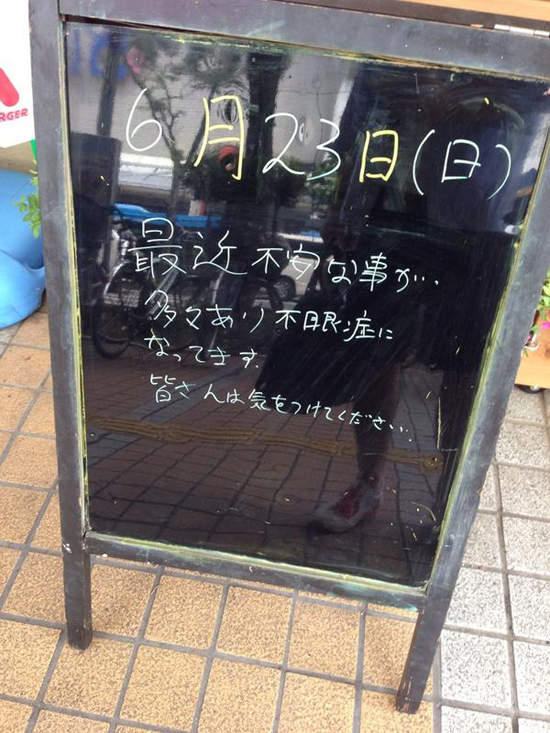 RGER
6月23日(日)
最近不安な事が…
多々あり不眠症に
なってきます.
皆さんは気をつけてください…